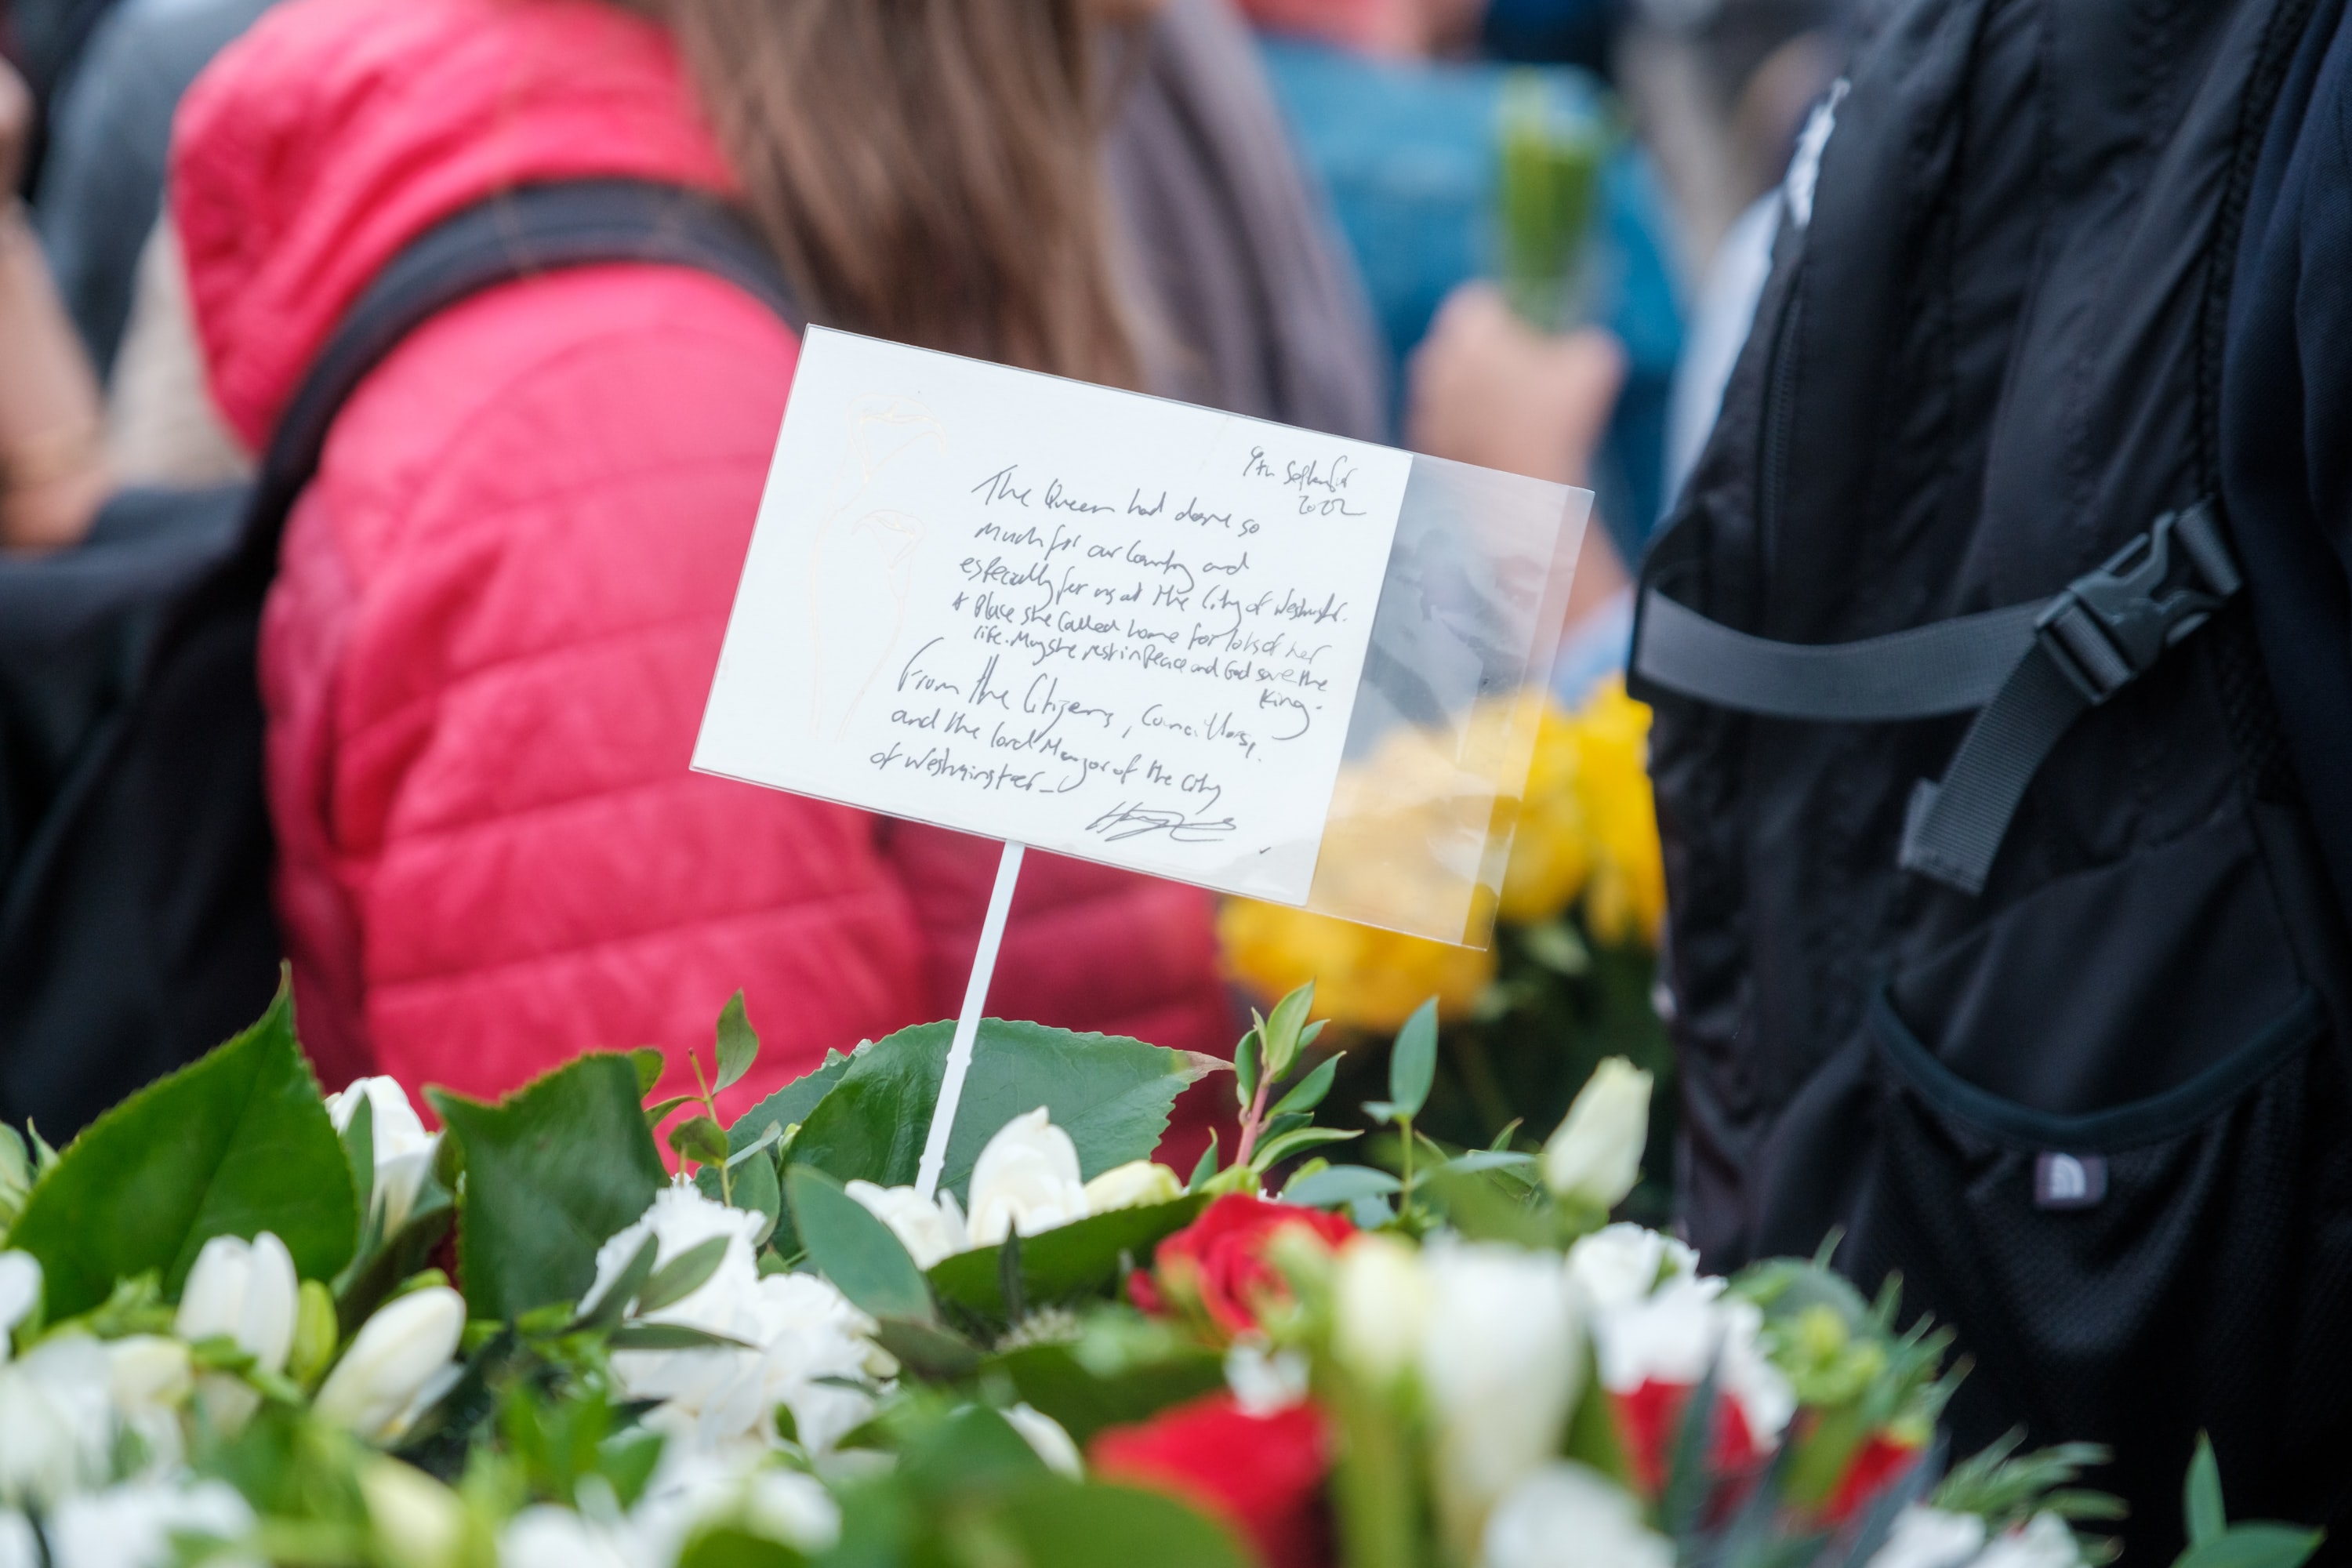 9th September
2022
The Queen had done so
much for our Country and
especially for us at the City of Westminster.
A Place she Called home for lots of her
life. May she rest in Peace and God save the
King.
From the Citizens, Councillors,
and the Lord Mayor of the City
of Westminster_